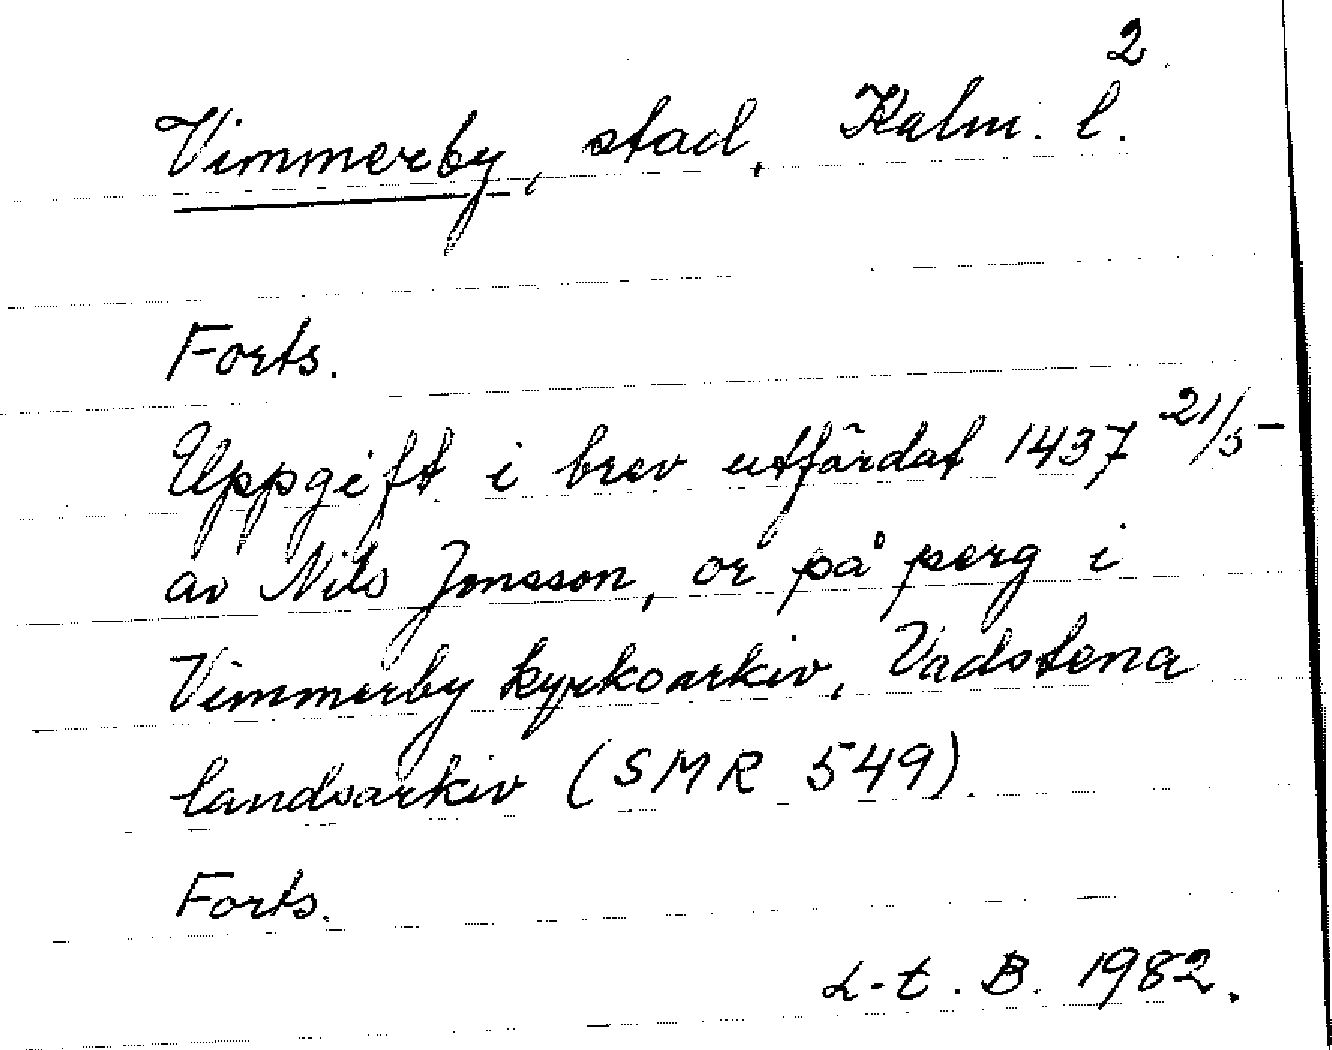 2.
Vimmerby, stad, Kalm. l.
Forts.
Uppgift i brev utfärdat 1437 21/5 -
av Nils Jonsson, or på perg i
Vimmerby kyrkoarkiv, Vadstena
landsarkiv (SMR 549).
Forts.
L-t. B. 1982.